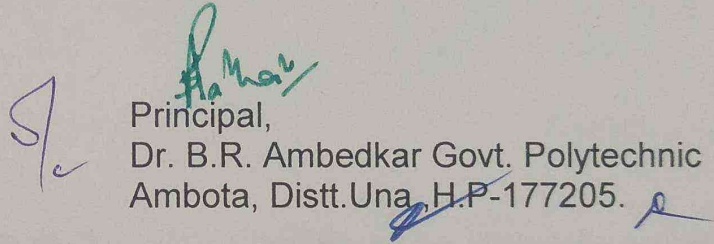 Principal,
Dr. B.R. Ambedkar Govt. Polytechnic
Ambota, Distt.Una, H.P-177205.